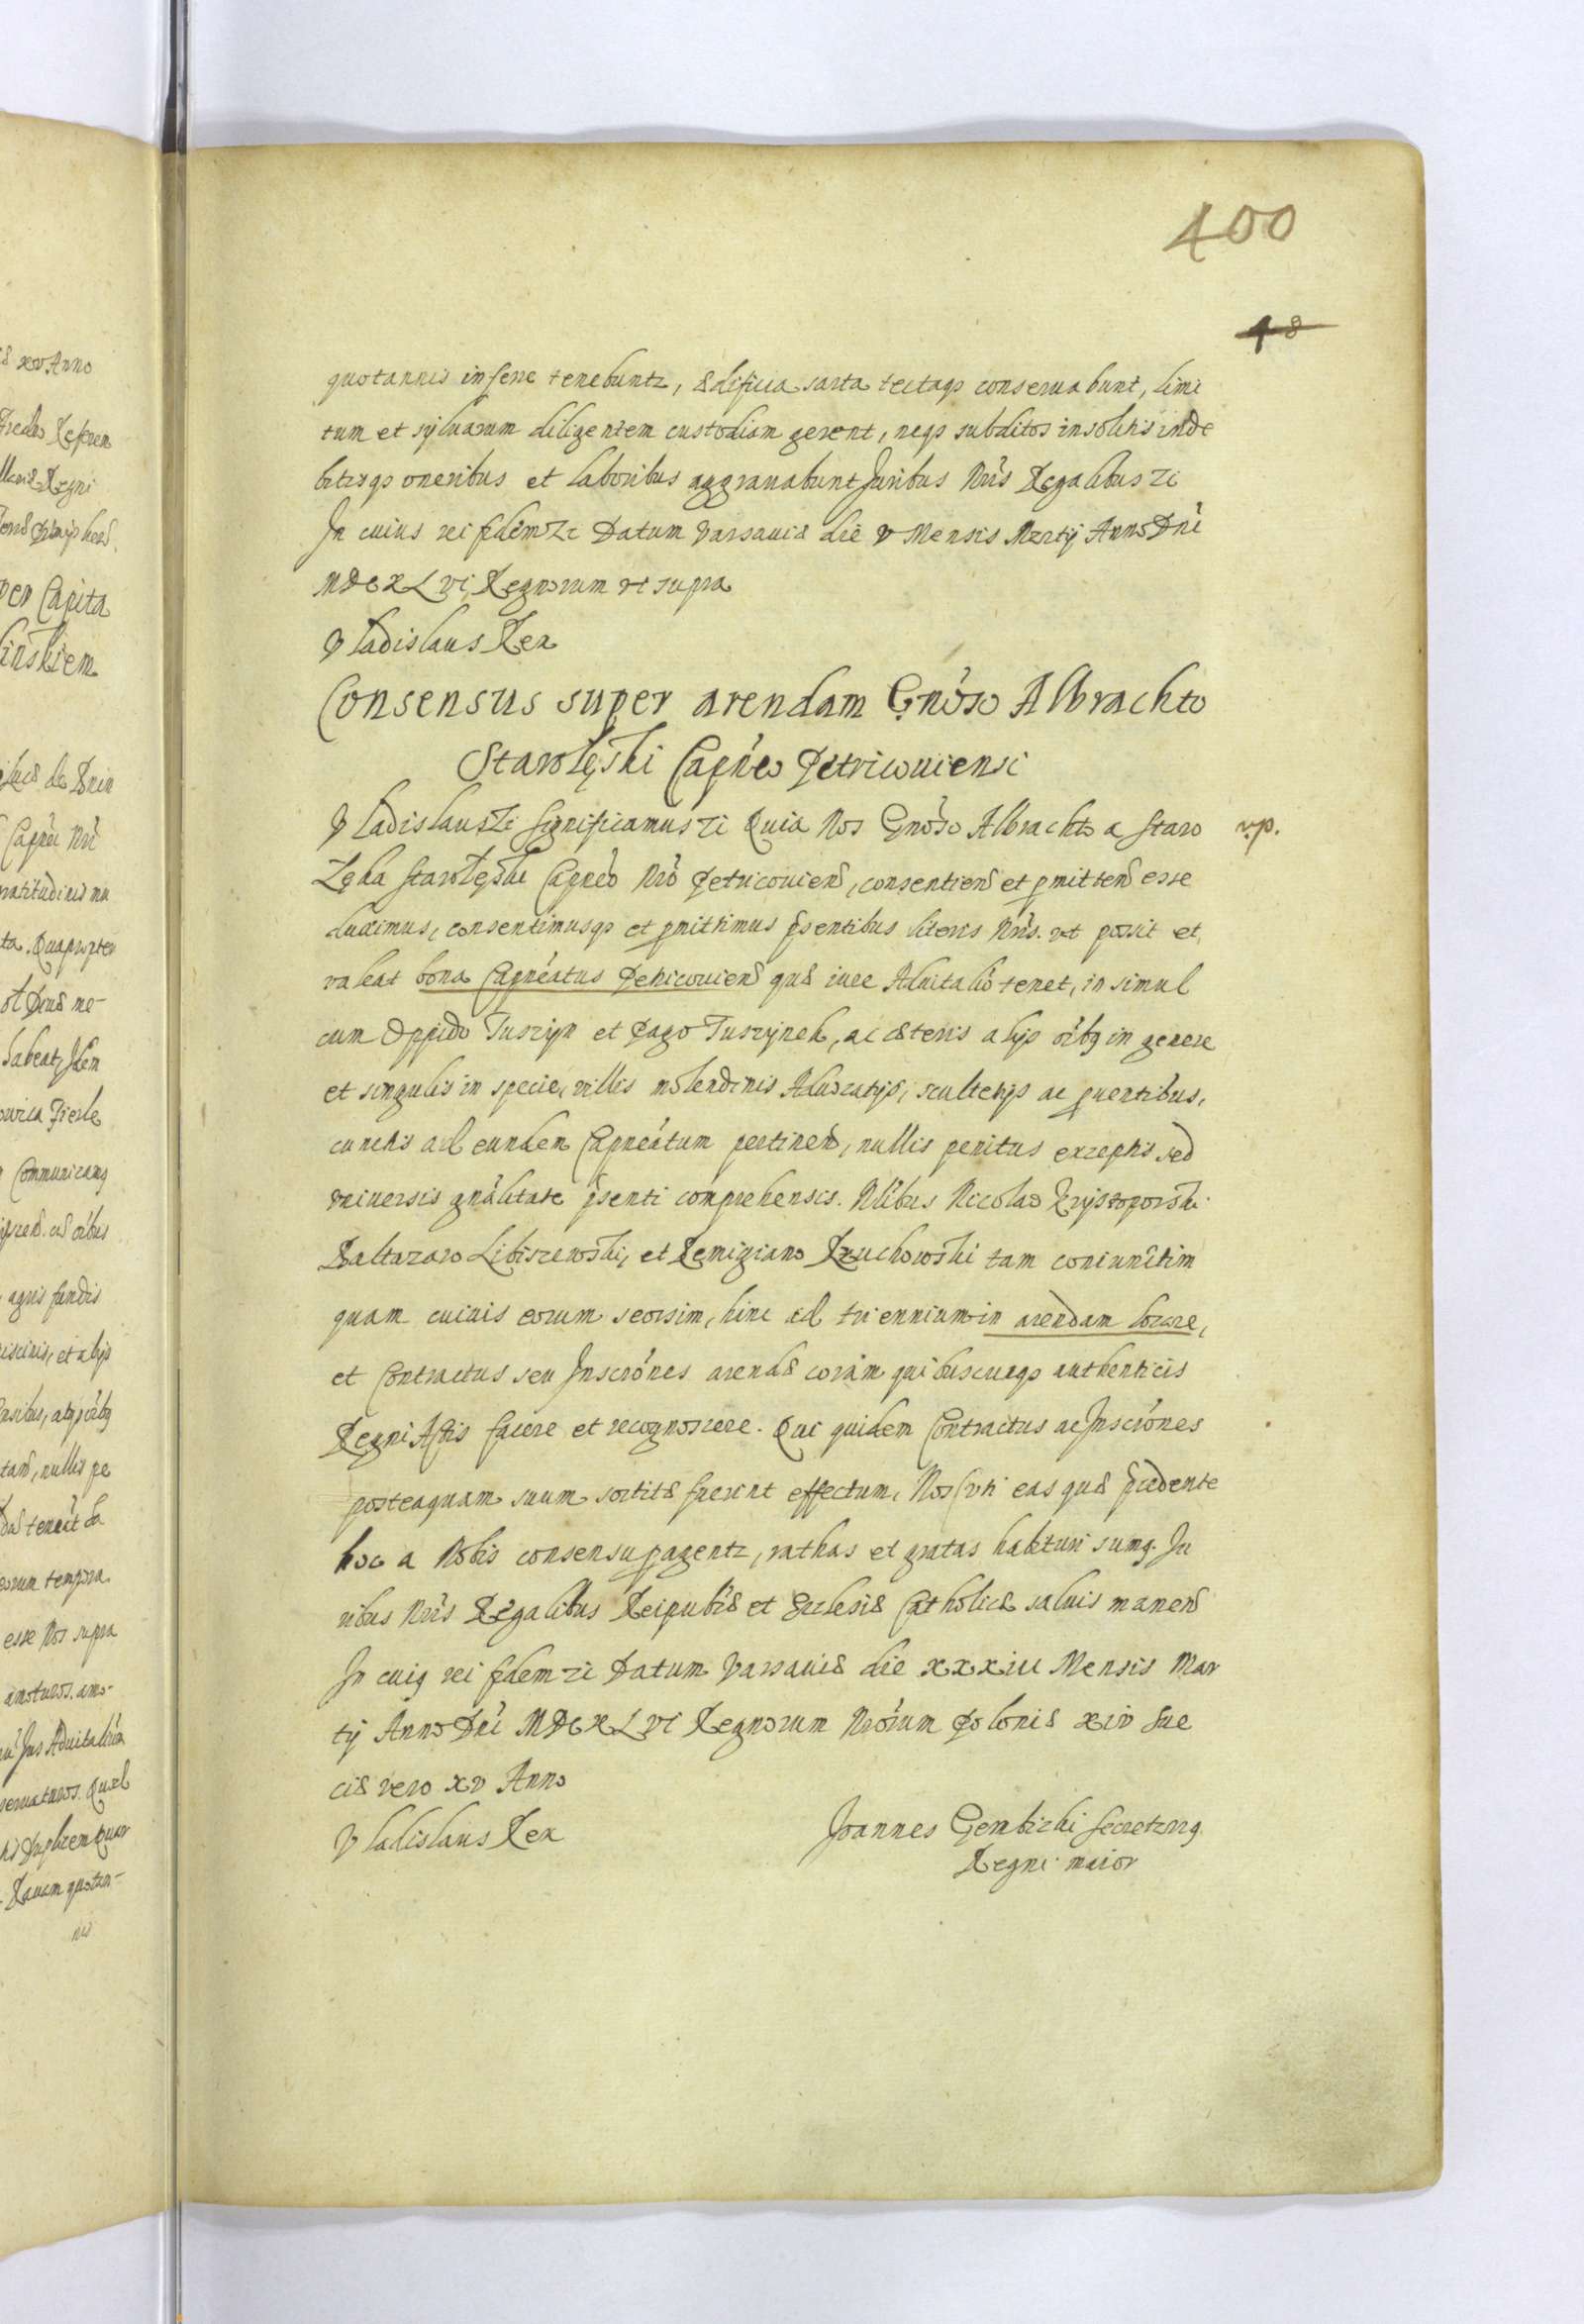 400
48
quotannis inferre tenebuntr, ædificia sarta tectaqȝ conseruabunt, limi
tum et syluarum diligentem custodiam gerent, neqȝ subditos insolitis inde
bitisqȝ oneribus et laboribus aggrauabunt Juribus Nris Regalibus zc
In cuius rei fidem zc Datum Varsauiæ die V Mensis Martij Anno Dni
MDCXLVI Regnorum vt supra
Vladislaus Rex
Consensus super arendam Gnoso Albrachto
Starolęski Capneo Petricouiensi
Vladislaus zc Significamus zc Quia Nos Gnoso Albrachto a Staro
v.p.
Lęka Starolęski Capneo Nro Petricouien, consentien et pmitten esse
duximus, consentimusqȝ et pmittimus psentibus literis Nris. vt possit et
valeat bona Capneatus Petricouien quæ iure Aduitalio tenet, in simul
cum Oppido Tuszyn et Pago Tuszynek, ac cæteris alijs oibg in genere
et singulis in specie, villis molendinis Aduocatijs, scultetijs ac puentibus,
cunctis ad eundem Capneatum pertinen, nullis penitus exceptis sed
vniuersis gnalitate psenti comprehensis. Nlibus Nicolao Krysztoporski
Baltazaro Libiszewski, et Remigiano Zuchowski tam coniunctim
quam cuiuis eorum seorsim, hinc ad triennium in arendam locare,
et Contractus seu Inscrones arendæ coram quibuscunqȝ authenticis
Regni Actis facere et recognoscere. Qui quidem Contractus ac Inscrones
posteaquam suum sortitæ fuerint effectum, Nos vti eas quæ pcedente
hoc a Nobis consensu pagentr, rathas et gratas habituri sumg. Ju
ribus Nris Regalibus Reipublæ et Ecclesiæ Catholicæ saluis manen
In cuig rei fidem zc Datum Varsauiæ die XXXIII Mensis Mar
tij Anno Dni MDCXLVI Regnorum Nrorum Poloniæ XIV Sue
ciæ vero XV Anno
Vladislaus Rex
Joannes Gembicki Secretarig
Regni maior